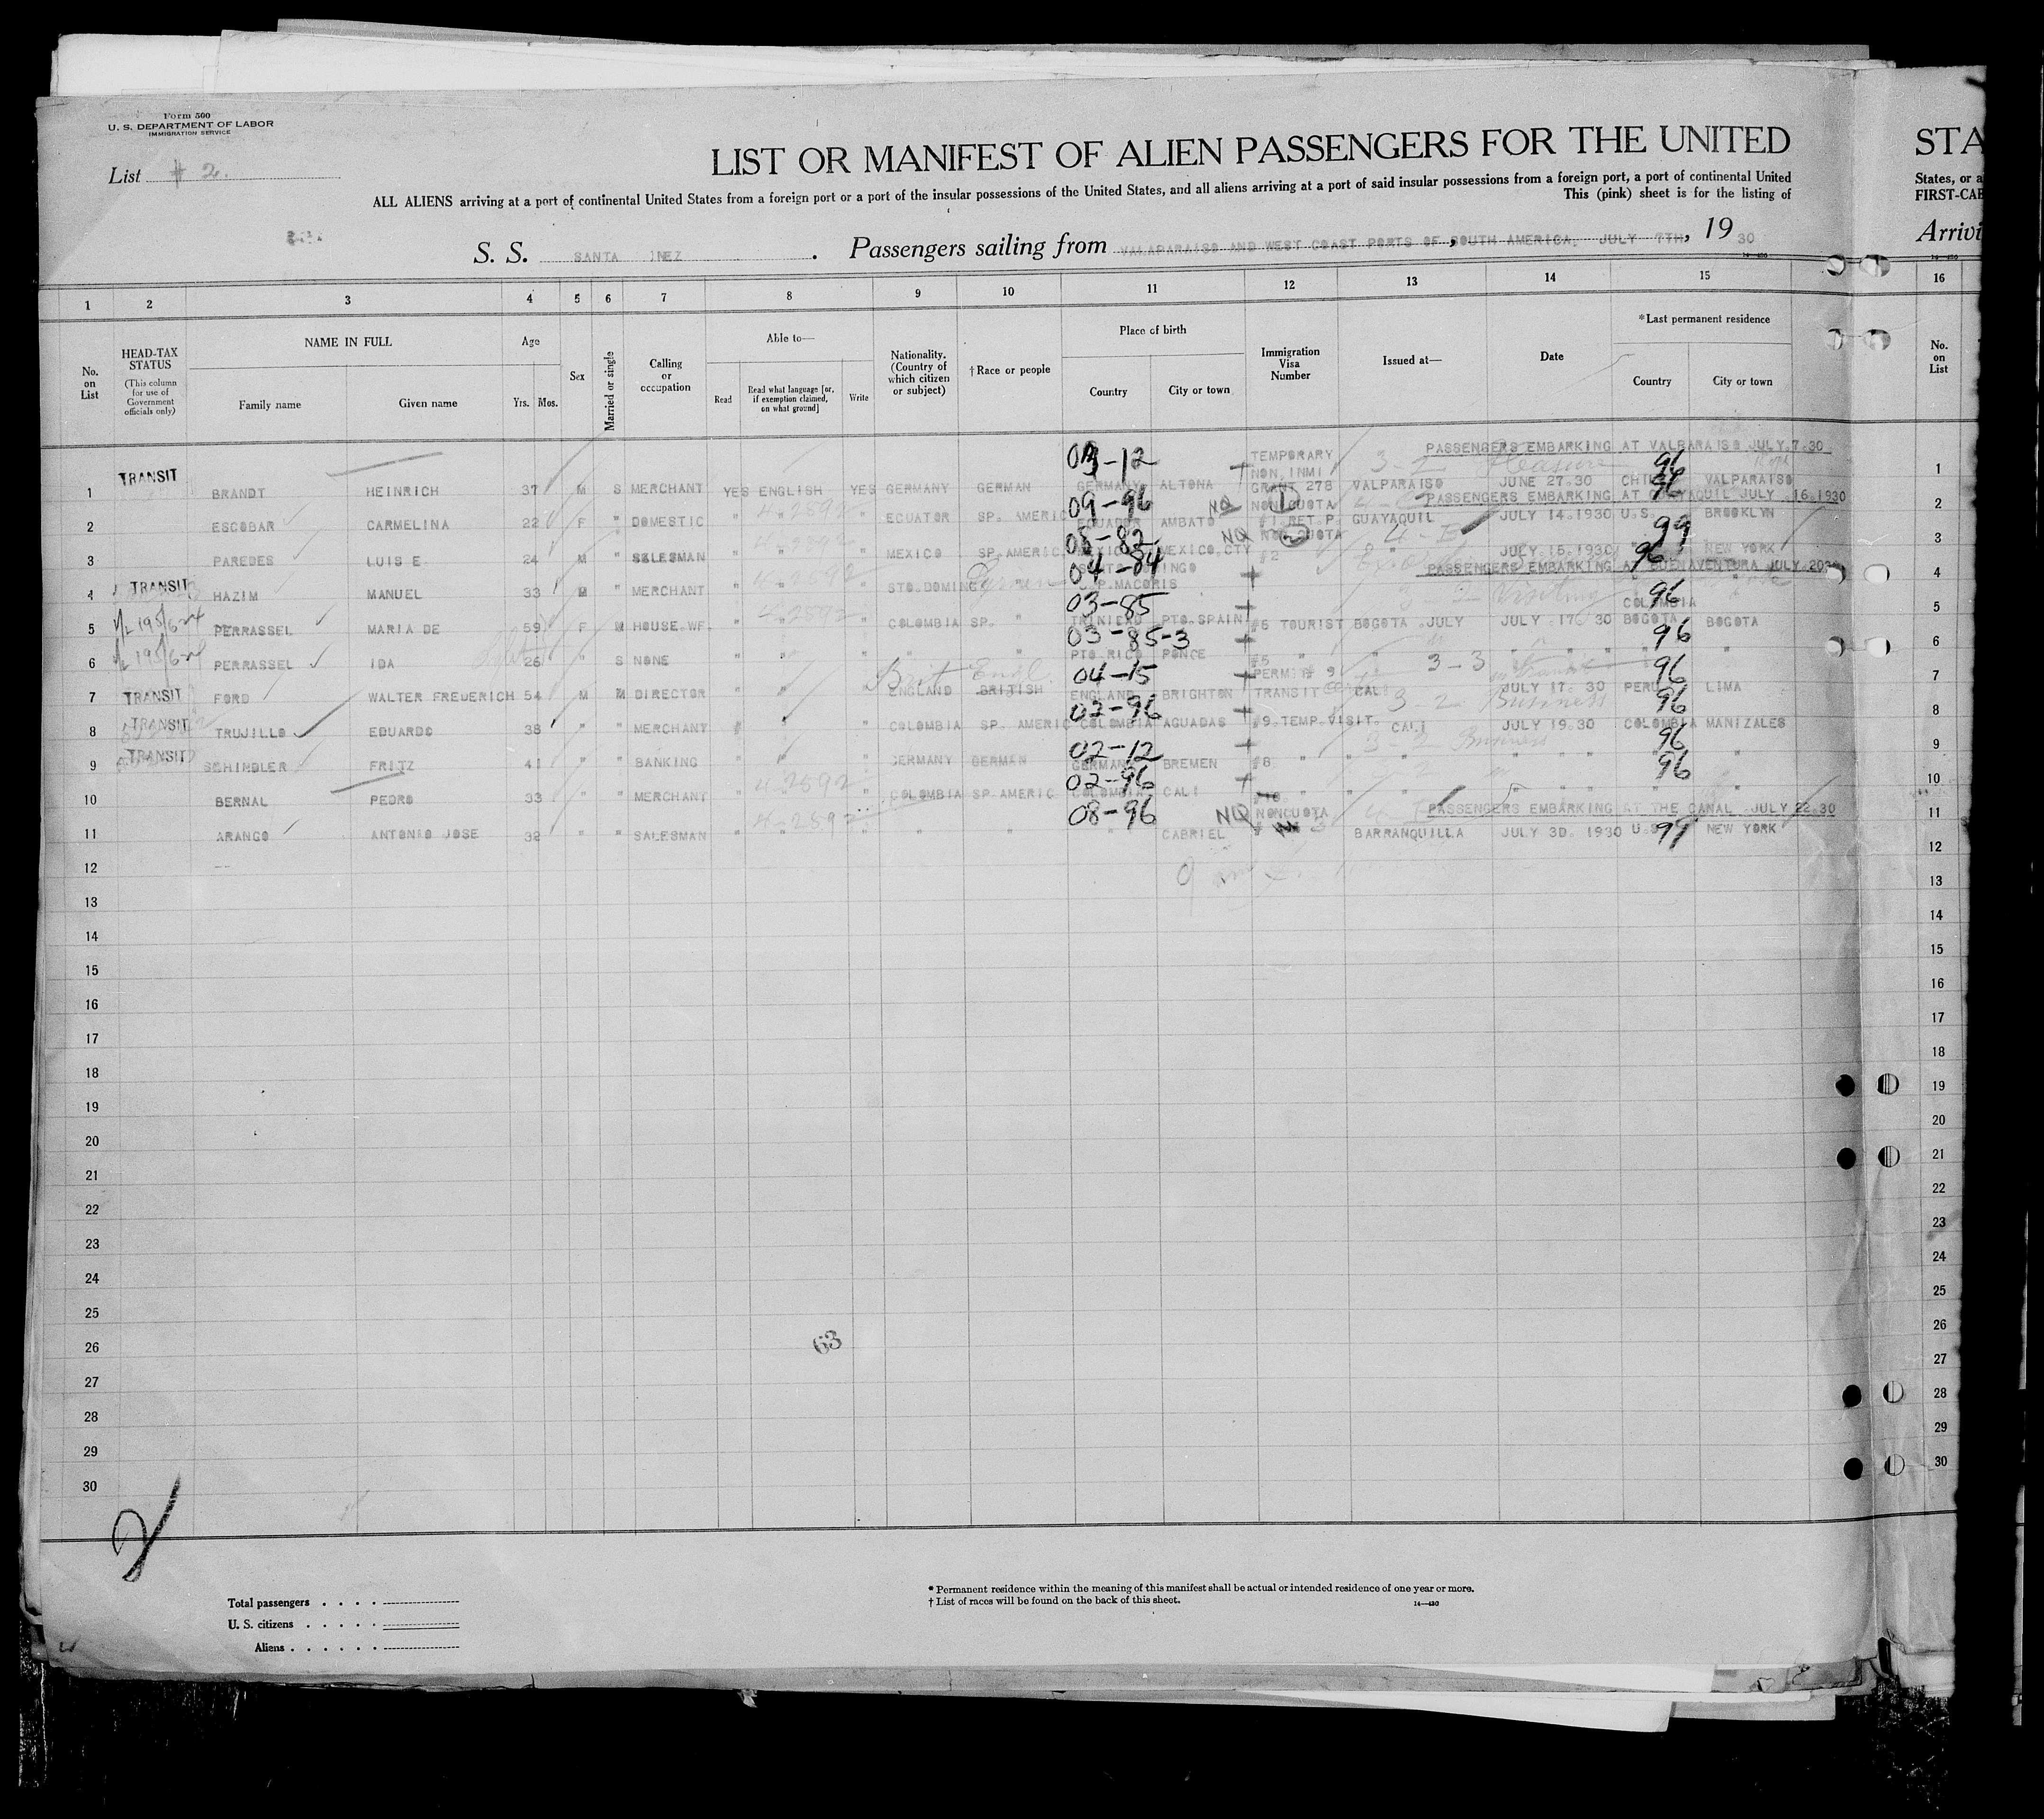 Form 500
U. S. DEPARTMENT OF LABOR
IMMIGRATION SERVICE
List # 2.
LIST OR MANIFEST OF ALIEN PASSENGERS FOR THE UNITED
STA
ALL ALIENS arriving at a port of continental United States from a foreign port or a port of the insular possessions of the United States, and all aliens arriving at a port of said insular possessions from a foreign port, a port of continental United
States, or a
This (pink) sheet is for the listing of
FIRST-CAB
S. S. SANTA INEZ . Passengers sailing from VALAPARAISO AND WEST COAST PORTS OF SOUTH AMERICA, JULY 7TH, 19 30
Arrivi
1 2 3 4 5 6 7 8 9 10 11 12 13 14 15 16
No. on List
HEAD-TAX STATUS (This column for use of Government officials only)
NAME IN FULL
Family name Given name
Age
Yrs. Mos.
Sex
Married or single
Calling or occupation
Able to—
Read Read what language [or, if exemption claimed, on what ground] Write
Nationality. (Country of which citizen or subject)
† Race or people
Place of birth
Country City or town
Immigration Visa Number
Issued at—
Date
* Last permanent residence
Country City or town
No. on List
PASSENGERS EMBARKING AT VALPARAISO JULY.7.30
03-12 TEMPORARY NON.INMI 3-2 Pleasure 96
1 TRANSIT BRANDT HEINRICH 37 M S MERCHANT YES ENGLISH YES GERMANY GERMAN GERMANY ALTONA GRANT 278 VALPARAISO JUNE 27.30 CHILE VALPARAISO 1
PASSENGERS EMBARKING AT GUAYAQUIL JULY .16.1930
09-96 NQ NONQUOTA 1 96
2 ESCOBAR CARMELINA 22 F " DOMESTIC " 4-2592 " ECUATOR SP. AMERIC ECUADOR AMBATO #1.RET.P. GUAYAQUIL JULY 14.1930 U.S. BROOKLYN 2
05-82 NQ NONQUOTA 2 4-E 99
3 PAREDES LUIS E 24 M " SALESMAN " " " MEXICO SP.AMERIC MEXICO MEXICO.CTY #2 " JULY.15.1930 " NEW YORK 3
PASSENGERS EMBARKING AT BUENAVENTURA JULY 20
04-84 96
4 TRANSIT HAZIM MANUEL 33 M " MERCHANT " " " STO.DOMING Syrian S.P.MACORIS 4
03-85 Visiting COLOMBIA 96
5 V/L 195/624 PERRASSEL MARIA DE 59 F M HOUSE.WF. " 4-2592 " COLOMBIA SP. " TRINIDAD PTO.SPAIN #6 TOURIST BOGOTA .JULY JULY .17. 30 BOGOTA BOGOTA 5
03-85-3 96
6 V/L 195/624 PERRASSEL IDA 26 " S NONE " " " " " PTO RICO PONCE #5 " " " " " 6
Brit Engl. 04-15 PERMIT# 9 3-3 96
7 TRANSIT FORD WALTER FREDERICH 54 M M DIRECTOR " " " ENGLAND BRITISH ENGLAND BRIGHTON TRANSIT CALI JULY 17. 30 PERU LIMA 7
02-96 3-2 Business 96
8 TRANSIT TRUJILLO EDUARDO 38 " " MERCHANT " " " COLOMBIA SP. AMERIC COLOMBIA AGUADAS #9.TEMP.VISIT. CALI JULY 19.30 COLOMBIA MANIZALES 8
02-12 3-2 Business 96
9 TRANSIT SCHINDLER FRITZ 41 " " BANKING " " " GERMANY GERMAN GERMANY BREMEN #8 " " " " " " 9
02-96 96
10 BERNAL PEDRO 33 " " MERCHANT " 4-2592 " COLOMBIA SP AMERIC COLOMBIA CALI " " " " " " 10
PASSENGERS EMBARKING AT THE CANAL .JULY 22.30
08-96 NQ NONQUOTA 3
11 ARANGO ANTONIO JOSE 32 " " SALESMAN " 4-2592 " " " " CABRIEL BARRANQUILLA JULY 30. 1930 U.S. 99 NEW YORK 11
12 -- 12
13 13
14 14
15 15
16 16
17 17
18 18
19 19
20 20
21 21
22 22
23 23
24 24
25 25
26 63 26
27 27
28 28
29 29
30 30
2
Total passengers . . . .
U. S. citizens . . . . .
Aliens . . . . . .
* Permanent residence within the meaning of this manifest shall be actual or intended residence of one year or more.
† List of races will be found on the back of this sheet.
14—430